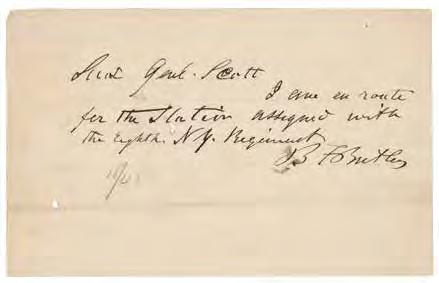 Lieut Genl. Scott
I am en route
for the Station assigned with
the Eighth. N.Y. Regiment
B F Butler